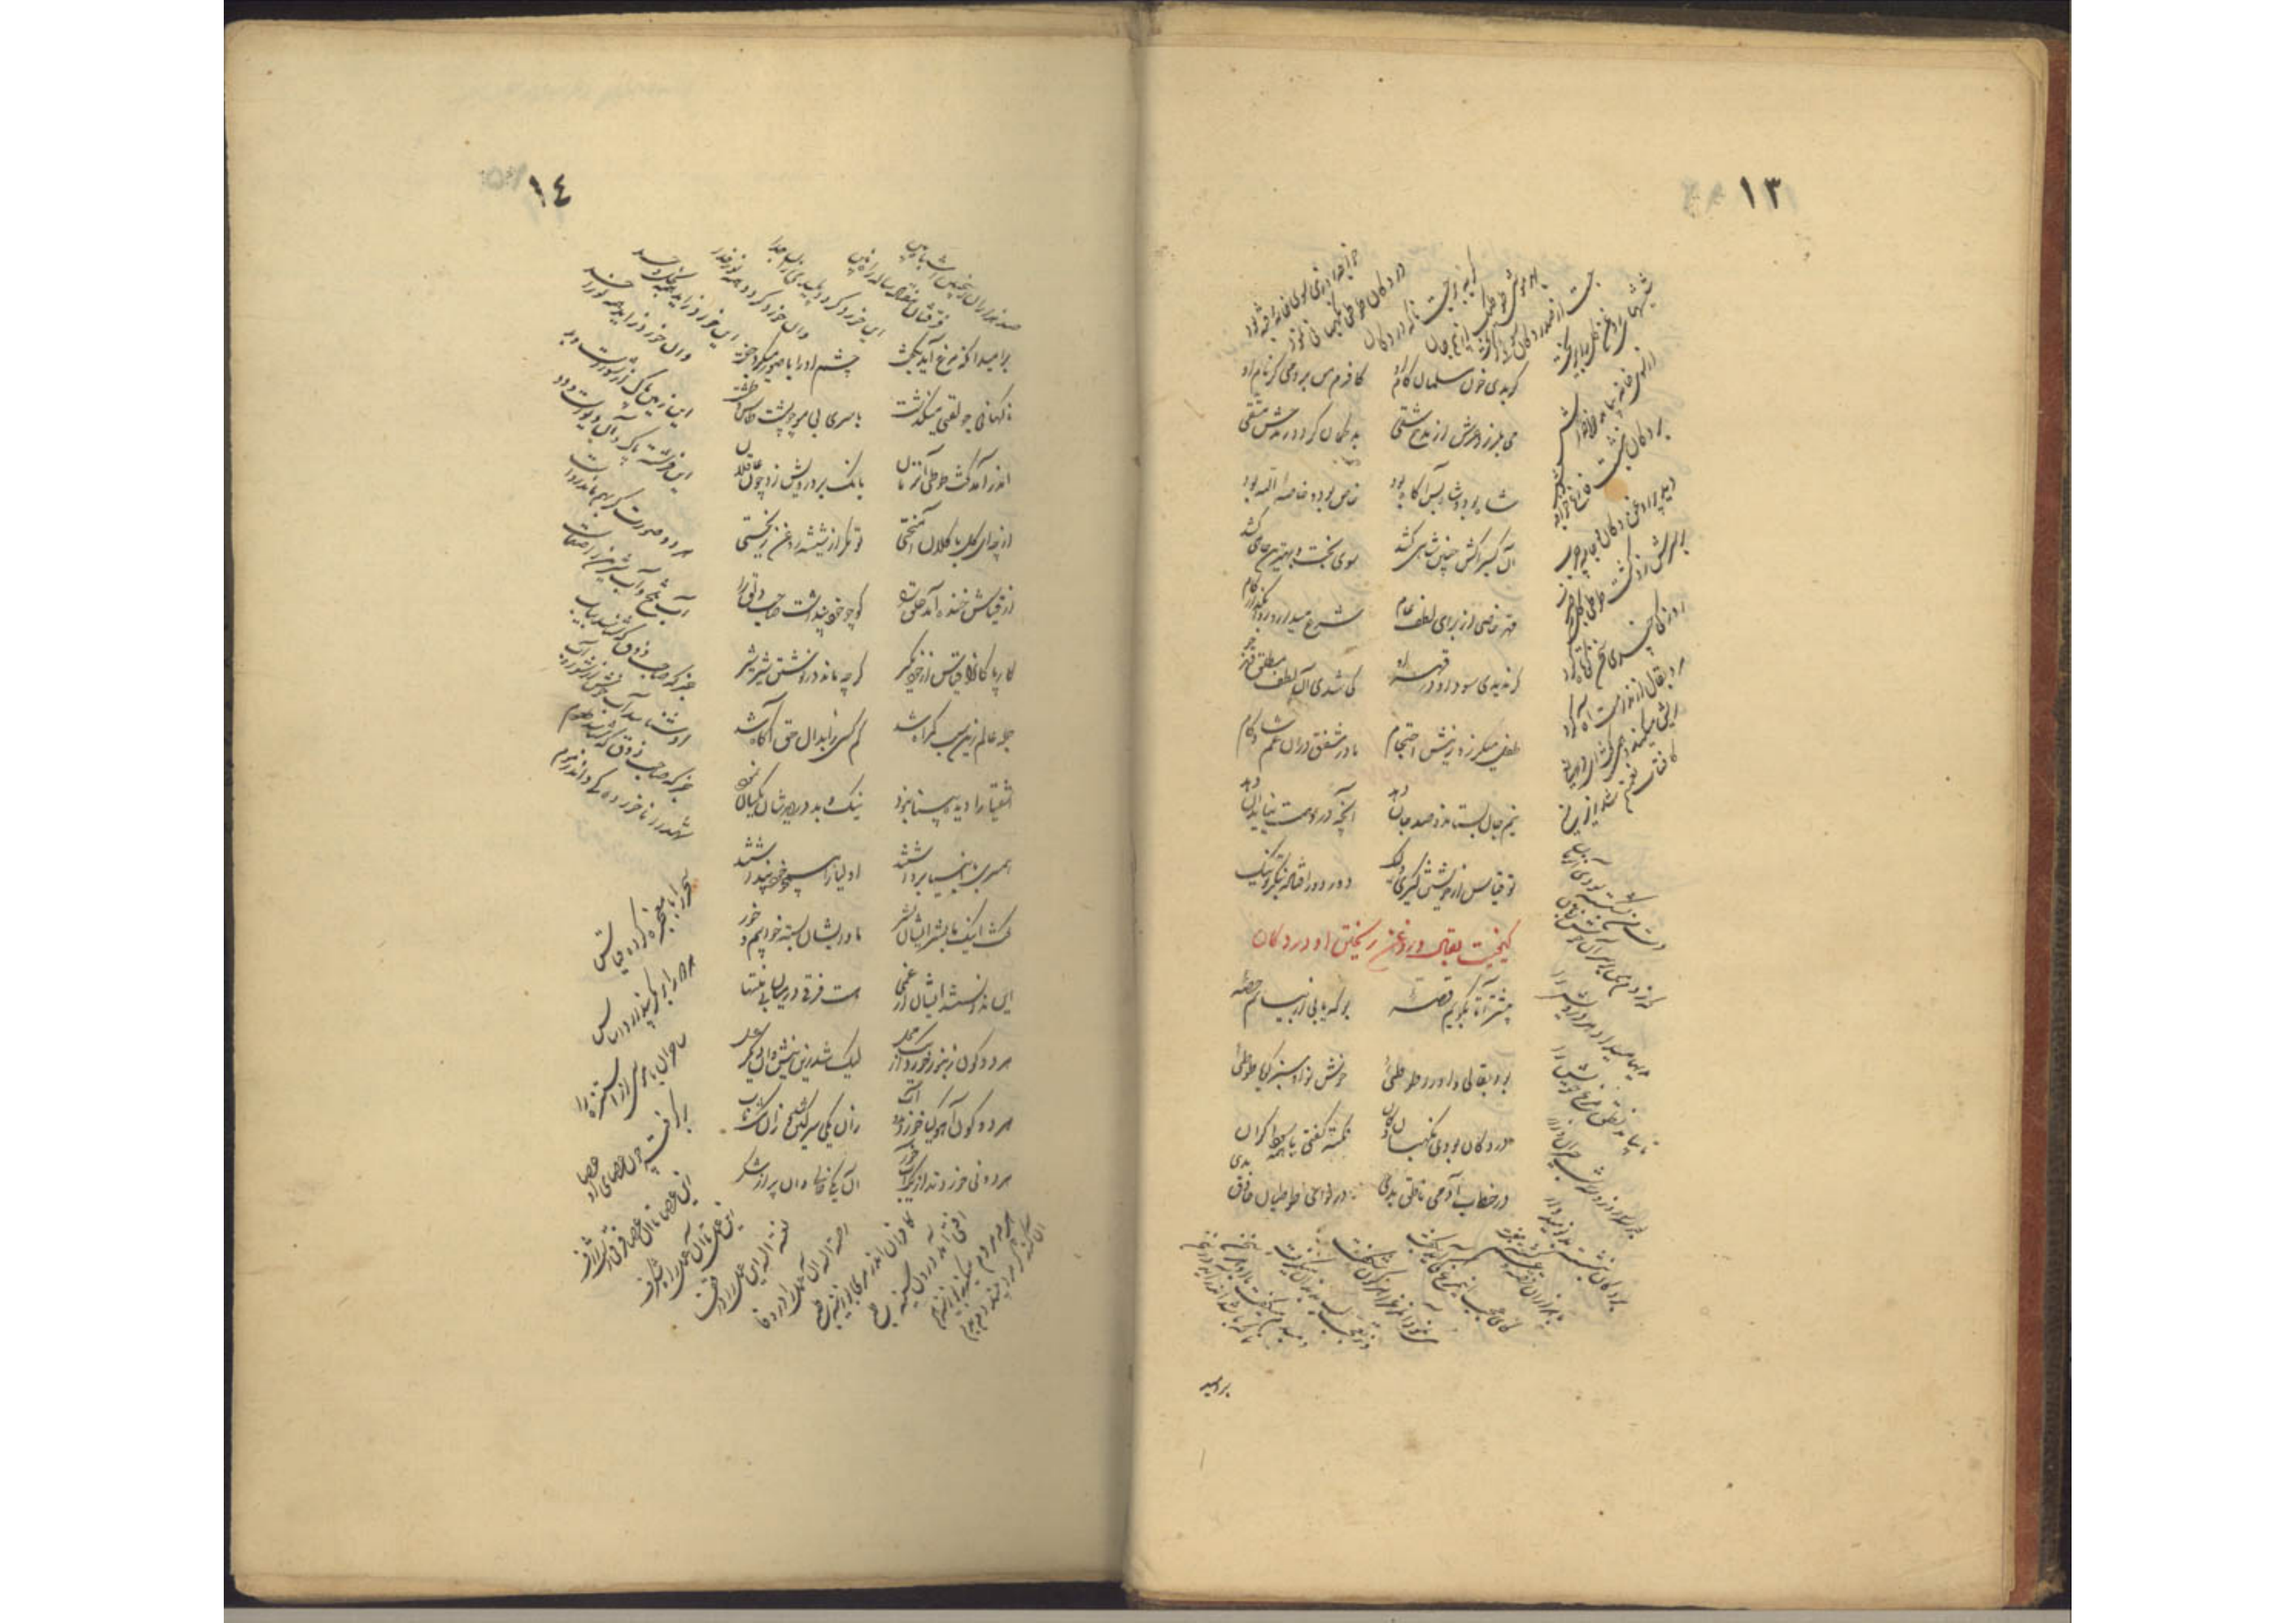 ١٣
گر بدی خون مسلمان کام او
کافرم من بردمی گر نام او
می بلرزد عرش از مدح شقی
بد گمان گردد ز مدحش متقی
شاه بود و شاه بس آگاه بود
خاص بود و خاصه الله بود
آن کسی را کش چنین شاهی کشد
سوی تخت و بهترین جاهی کشد
قهر خاصی از برای لطف عام
شرع میدارد روا بگذار کام
گر ندیدی سود او در قهر او
کی شدی آن لطف مطلق قهر جو
طفل میلرزد ز نیش احتجام
مادر مشفق در آن غم شادکام
نیم جان بستاند و صد جان دهد
آنچه در وهمت نیاید آن دهد
تو قیاس از خویش میگیری ولیک
دور دور افتاده بنگر تو نیک
بقال و روغن ریختن او در دکان
پیشتر آ تا بگویم قصه
بو که یابی از بیانم حصه
بود بقالی و او را طوطئی
خوش نوا و سبز و گویا طوطئی
در دکان بودی نگهبان دکان
نکته گفتی با همه سوداگران
در خطاب آدمی ناطق بدی
در نوای طوطیان حاذق بدی
خواجه روزی سوی خانه رفته بود
در دکان طوطی نگهبانی نمود
گربه برجست ناگه در دکان
بهر موشی طوطیک از بیم جان
جست از صدر دکان سوی گریخت
شیشهای روغن گل را بریخت
از سوی خانه بیامد خواجه اش
بر دکان بنشست فارغ خواجه وش
دید پر روغن دکان و جامه چرب
بر سرش زد گشت طوطی کل ز ضرب
روزکی چندی سخن کوتاه کرد
مرد بقال از ندامت آه کرد
ریش بر میکند و میگفت ای دریغ
کافتاب نعمتم شد زیر میغ
دست من بشکسته بودی آن زمان
که زدم من بر سر آن خوش زبان
هدیها میداد هر درویش را
تا بیابد نطق مرغ خویش را
بر دکان بنشسته بد نومید وار
برامید
١٤
بر امید آنکه مرغ آید بگفت
چشم او را با صور میکرد جفت
ناگهانی جولقی میگذشت
با سر بی مو چو پشت طاس و طشت
اندر آمد گفت طوطی آن زمان
بانگ بر درویش زد چون عاقلان
از چه ای کل با کلان آمیختی
تو مگر از شیشه روغن ریختی
از قیاسش خنده آمد خلق را
کو چو خود پنداشت صاحب دلق را
کار پاکان را قیاس از خود مگیر
گرچه ماند در نوشتن شیر شیر
جمله عالم زین سبب گمراه شد
کم کسی ز ابدال حق آگاه شد
اشقیا را دیده بینا نبود
نیک و بد در دیده شان یکسان نمود
همسری با انبیا برداشتند
اولیا را همچو خود پنداشتند
گفت اینک ما بشر ایشان بشر
ما و ایشان بسته خوابیم و خور
این ندانستند ایشان از عمی
هست فرقی در میان بی منتها
هر دو گون زنبور خوردند از محل
لیک شد زین نیش و زان دیگر عسل
هر دو گون آهو گیا خوردند و آب
زین یکی سرگین شد و زان مشک ناب
هر دو نی خوردند از یک آبخور
آن یکی خالی و آن پر از شکر
صد هزاران این چنین اشباه بین
فرقشان هفتاد ساله راه بین
این خورد گردد پلیدی زو جدا
وان خورد گردد همه نور خدا
این خورد زاید همه بخل و حسد
وان خورد زاید همه نور احد
این زمین پاک و آن شورست و بد
این فرشته پاک و آن دیوست و دد
هر دو صورت گر بهم ماند رواست
آب تلخ و آب شیرین را صفاست
جز که صاحب ذوق که شناسد بیاب
او شناسد آب خوش از شوره آب
جز که صاحب ذوق که شناسد طعوم
شهد را ناخورده کی داند ز موم
سحر را با معجزه کرده قیاس
هر دو را بر مکر پندارد اساس
ساحران با موسی از استیزه را
بر گرفته چون عصای او عصا
زین عصا تا آن عصا فرقیست ژرف
زین عمل تا آن عمل راهی شگرف
لعنة الله این عمل را در قفا
رحمة الله آن عمل را در وفا
کافران اندر مری بوزینه طبع
آفتی آمد درون سینه طبع
هرچه مردم میکند بوزینه هم
آن کند کز مرد بیند دم بدم